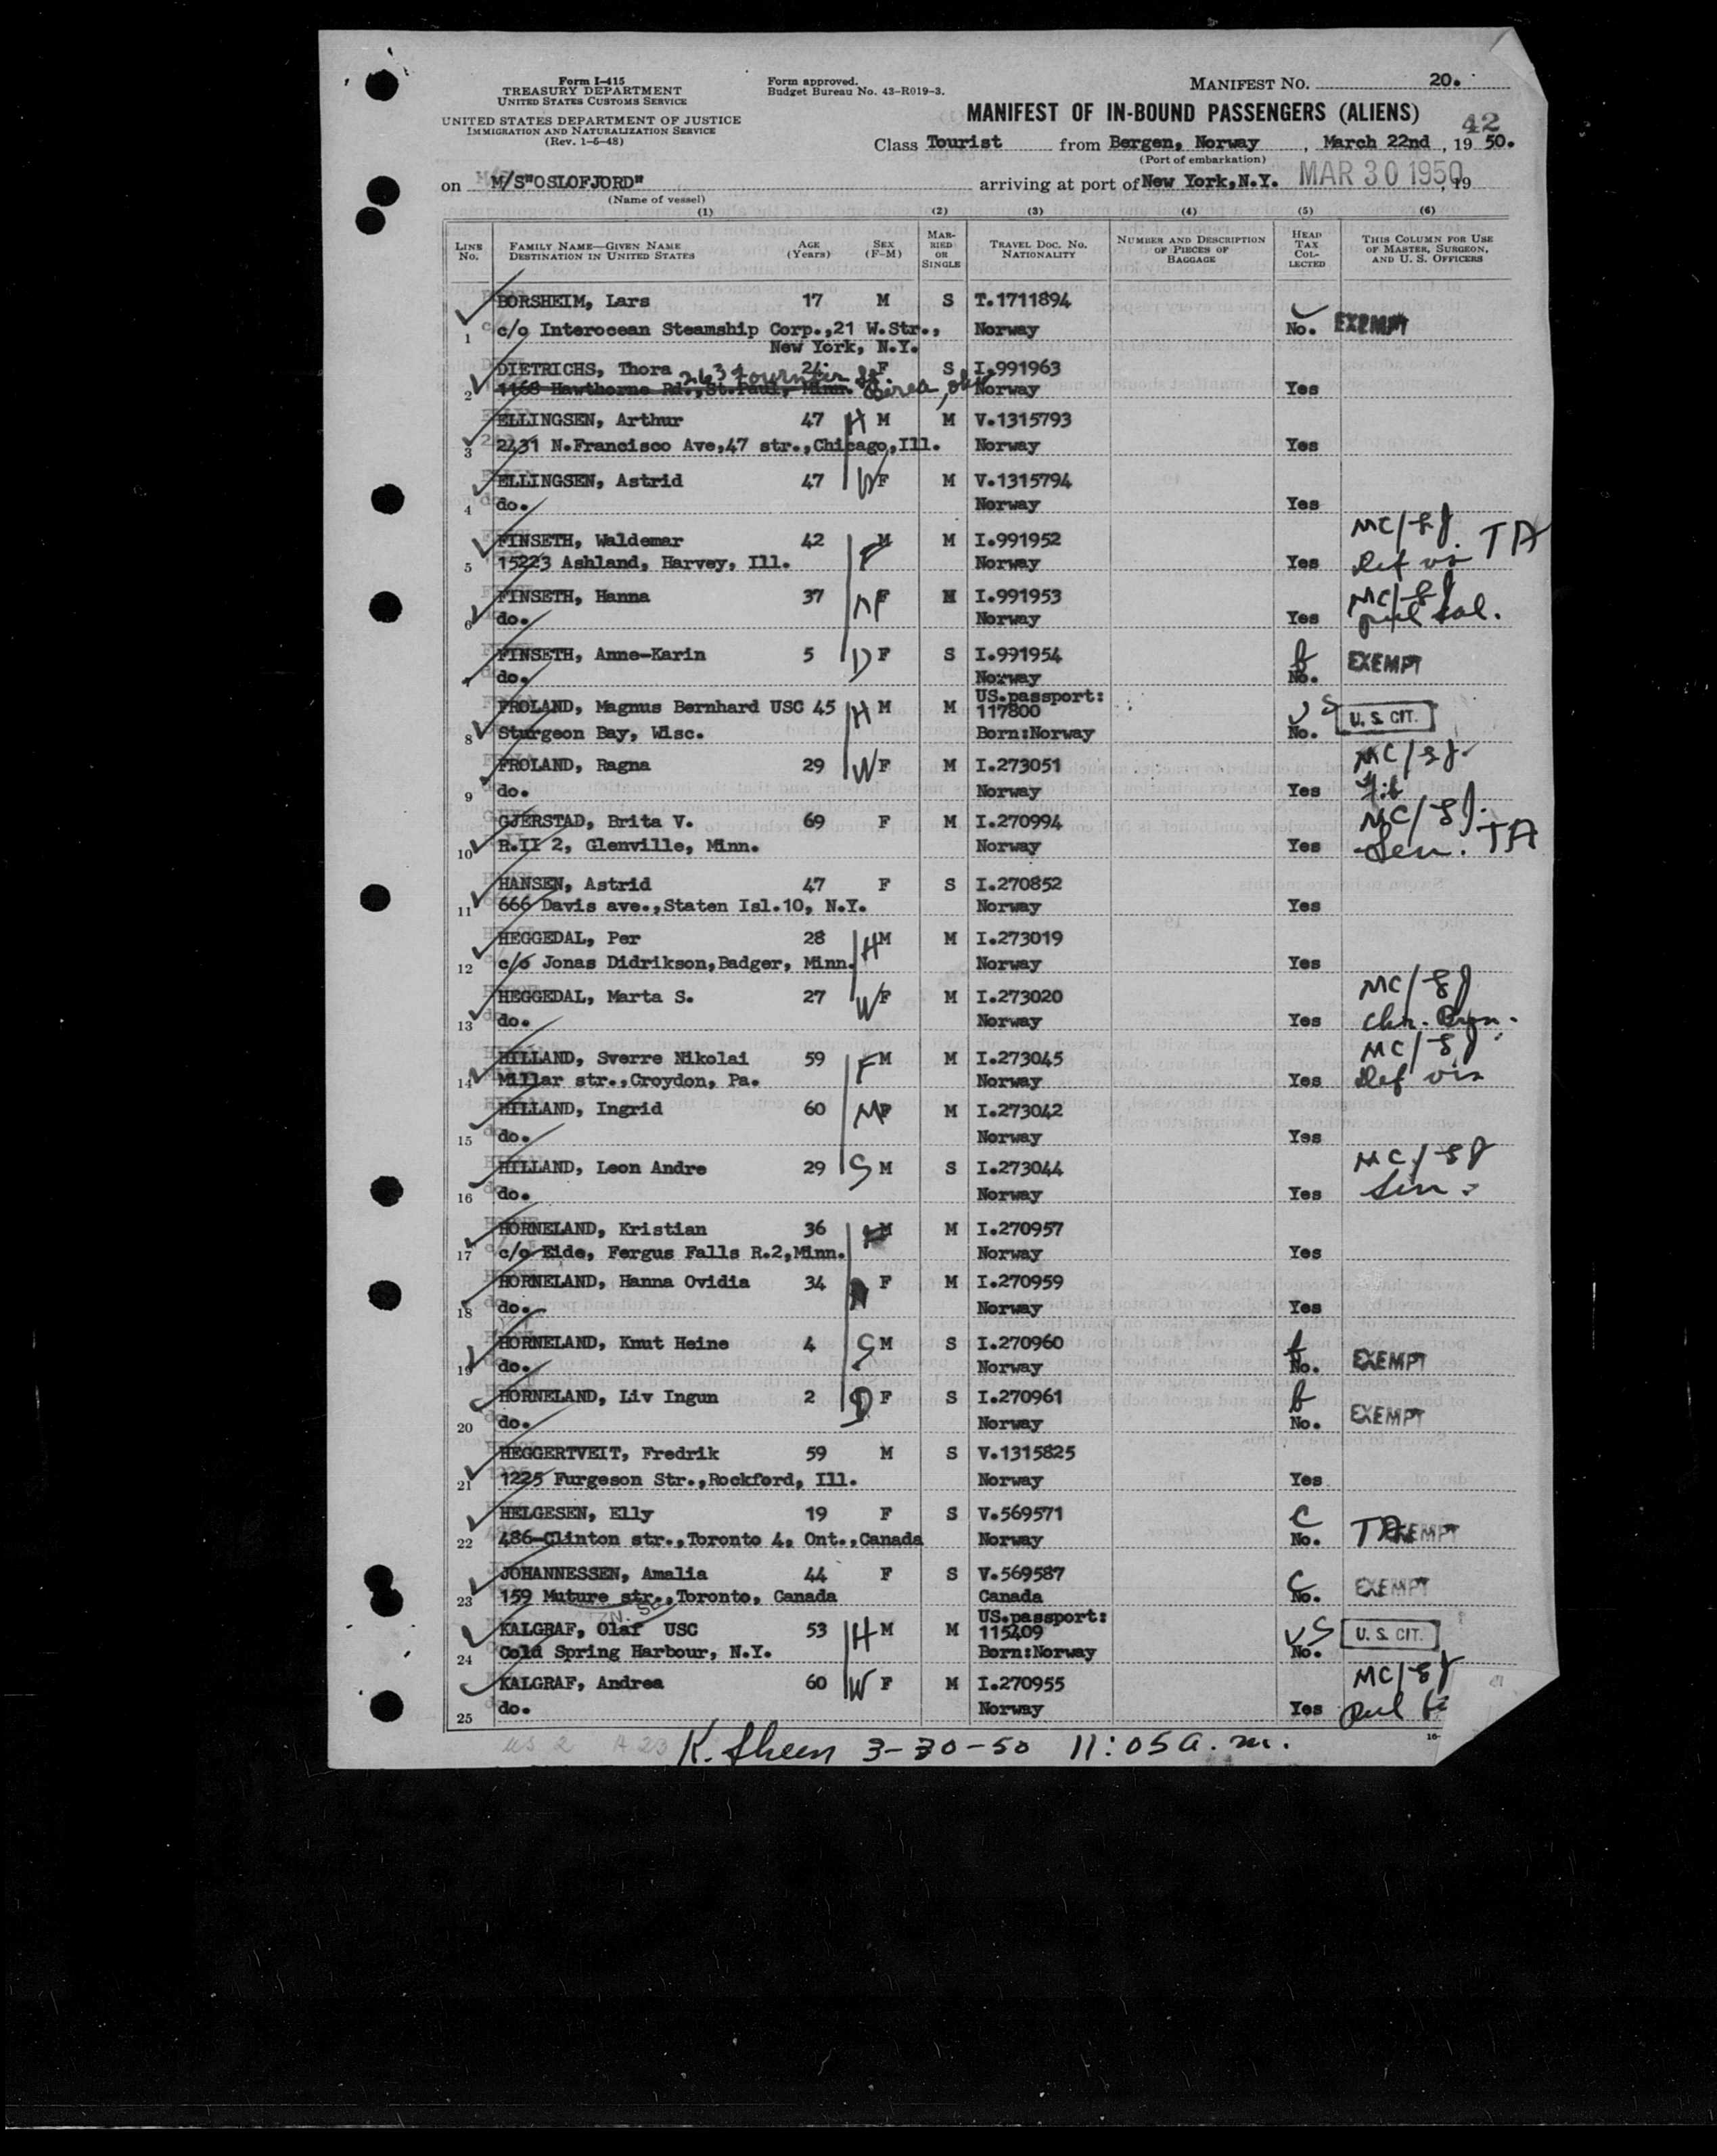 Form I-415
TREASURY DEPARTMENT
UNITED STATES CUSTOMS SERVICE
UNITED STATES DEPARTMENT OF JUSTICE
IMMIGRATION AND NATURALIZATION SERVICE
(Rev. 1-6-48)
Form approved.
Budget Bureau No. 43-R019-3.
MANIFEST NO. 20.
MANIFEST OF IN-BOUND PASSENGERS (ALIENS)
42
Class Tourist from Bergen, Norway, March 22nd, 1950.
(Port of embarkation)
on M/S"OSLOFJORD" arriving at port of New York,N.Y. MAR 30 1950, 19
(Name of vessel)
(1) (2) (3) (4) (5) (6)
LINE No. FAMILY NAME—GIVEN NAME DESTINATION IN UNITED STATES AGE (Years) SEX (F-M) MARRIED OR SINGLE TRAVEL DOC. NO. NATIONALITY NUMBER AND DESCRIPTION OF PIECES OF BAGGAGE HEAD TAX COLLECTED THIS COLUMN FOR USE OF MASTER, SURGEON, AND U. S. OFFICERS
BORSHEIM, Lars 17 M S T.1711894
1 c/o Interocean Steamship Corp.,21 W.Str., Norway No. EXEMPT
New York, N.Y.
DIETRICHS, Thora 24 F S I.991963
263 Fournier St.
2 1168 Hawthorne Rd.,St.Paul, Minn. Norway Yes
ELLINGSEN, Arthur 47 H M M V.1315793
3 2431 N.Francisco Ave,47 str.,Chicago,Ill. Norway Yes
ELLINGSEN, Astrid 47 W F M V.1315794
4 do. Norway Yes
FINSETH, Waldemar 42 F M M I.991952 MC/SJ TA
5 15223 Ashland, Harvey, Ill. Norway Yes Def vis
FINSETH, Hanna 37 M F M I.991953 MC/SJ
6 do. Norway Yes
FINSETH, Anne-Karin 5 D F S I.991954 EXEMPT
7 do. Norway No.
FROLAND, Magnus Bernhard USC 45 H M M US.passport: 117800 US U. S. CIT.
8 Sturgeon Bay, Wisc. Born:Norway No.
FROLAND, Ragna 29 W F M I.273051 MC/SJ
9 do. Norway Yes
GJERSTAD, Brita V. 69 F M I.270994 MC/SJ
10 R.II 2, Glenville, Minn. Norway Yes Sen. TA
HANSEN, Astrid 47 F S I.270852
11 666 Davis ave.,Staten Isl.10, N.Y. Norway Yes
HEGGEDAL, Per 28 H M M I.273019
12 c/o Jonas Didrikson,Badger, Minn. Norway Yes
HEGGEDAL, Marta S. 27 W F M I.273020 MC/SJ
13 do. Norway Yes
HILLAND, Sverre Nikolai 59 F M M I.273045 MC/SJ
14 Millar str.,Croydon, Pa. Norway Yes Def vis
HILLAND, Ingrid 60 M F M I.273042
15 do. Norway Yes
HILLAND, Leon Andre 29 S M S I.273044 MC/SJ
16 do. Norway Yes
HORNELAND, Kristian 36 M M I.270957
17 c/o Eide, Fergus Falls R.2,Minn. Norway Yes
HORNELAND, Hanna Ovidia 34 F M I.270959
18 do. Norway Yes
HORNELAND, Knut Heine 4 S M S I.270960
19 do. Norway No. EXEMPT
HORNELAND, Liv Ingun 2 D F S I.270961
20 do. Norway No. EXEMPT
HEGGERTVEIT, Fredrik 59 M S V.1315825
21 1225 Furgeson Str.,Rockford, Ill. Norway Yes
HELGESEN, Elly 19 F S V.569571 C
22 486-Clinton str.,Toronto 4, Ont.,Canada Norway No. EXEMPT
JOHANNESSEN, Amalia 44 F S V.569587 C
23 159 Muture str.,Toronto, Canada Canada No. EXEMPT
KALGRAF, Olaf USC 53 H M M US.passport: 115209 US U. S. CIT.
24 Cold Spring Harbour, N.Y. Born:Norway No.
KALGRAF, Andrea 60 W F M I.270955 MC/SJ
25 do. Norway Yes
US 2 A 23 K. Sheen 3-30-50 11:05 a.m.